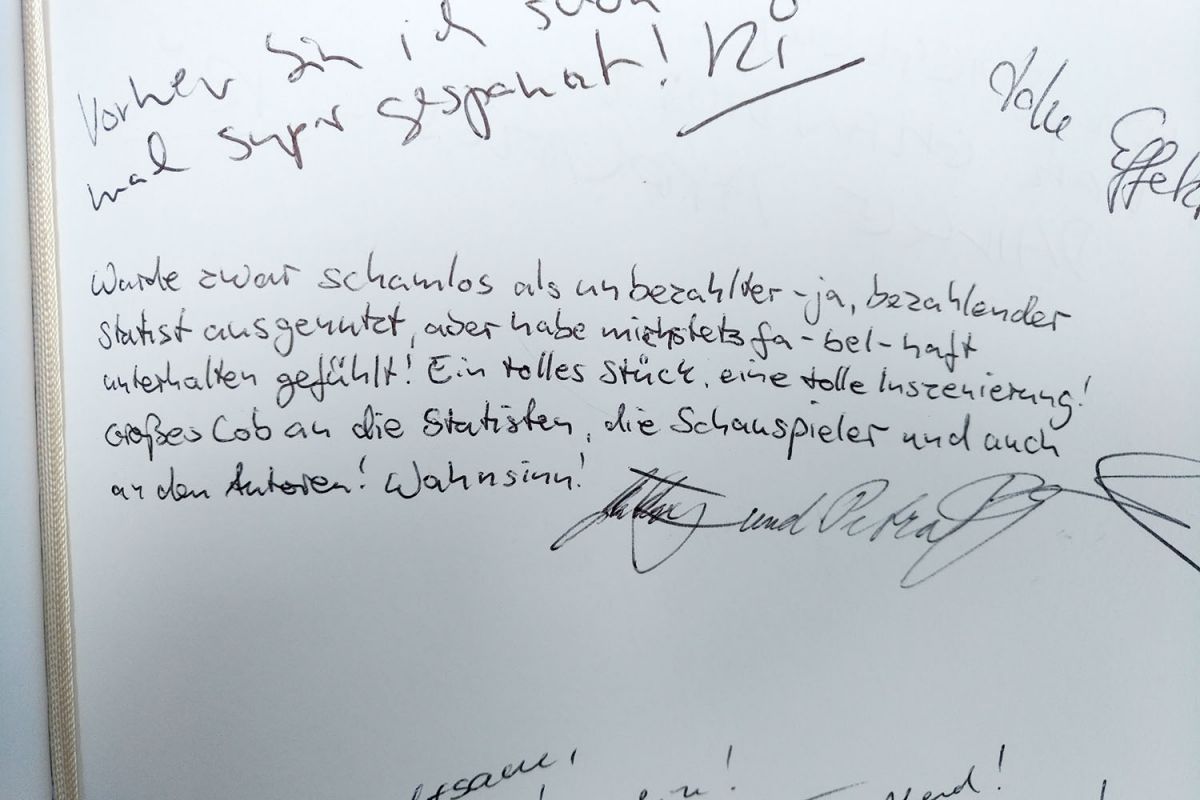 Vorher bin ich schon
mal super gespannt! Ri
tolle
Effek
Wurde zwar schamlos als unbezahlter - ja, bezahlender
Statist ausgenutzt, aber habe mich stets fa-bel-haft
unterhalten gefühlt! Ein tolles Stück, eine tolle Inszenierung!
Großes Lob an die Statisten, die Schauspieler und auch
an den Autoren! Wahnsinn!
und Petra